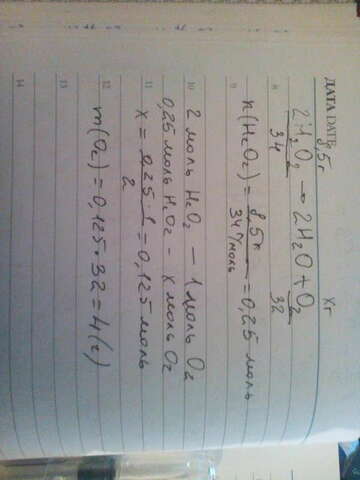 ДАТА DATE
8,5г Xг
2H₂O₂ → 2H₂O + O₂
8 34 32
n(H₂O₂) = 8,5г / 34 г/моль = 0,25 моль
9
10 2 моль H₂O₂ — 1 моль O₂
0,25 моль H₂O₂ – x моль O₂
11 x = 0,25·1 / 2 = 0,125 моль
12 m(O₂) = 0,125·32 = 4(г)
13
14